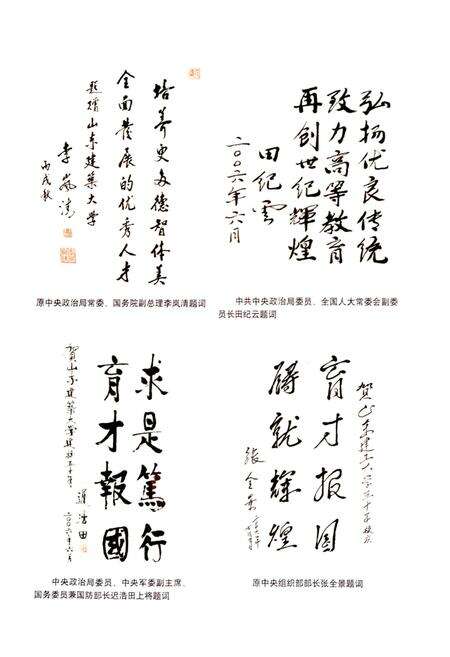 培养更多德智体美
全面发展的优秀人才
题赠山东建筑大学
李岚清
丙戌秋
原中央政治局常委、国务院副总理李岚清题词
弘扬优良传统
致力高等教育
再创世纪辉煌
田纪云
二〇〇六年六月
中共中央政治局委员、全国人大常委会副委
员长田纪云题词
求是篤行
育才報國
賀山东建築大學建校五十年
遲浩田
二〇〇六年六月
中央政治局委员、中央军委副主席、
国务委员兼国防部长迟浩田上将题词
贺山东建工大学五十年校庆
育才报国
铸就辉煌
张全景
原中央组织部部长张全景题词